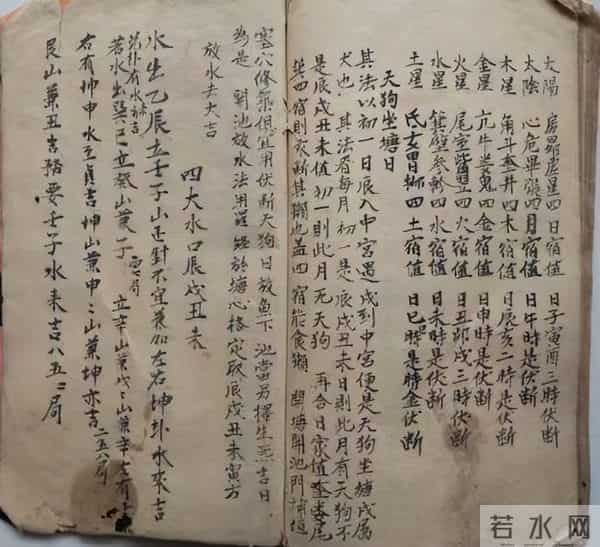 太陽 房昴虛星四日宿值 日子寅酉三時伏断
太陰 心危畢張四月宿值 日午時是伏断
木星 角斗奎井四木宿值 日辰亥二時是伏断
金星 亢牛娄鬼四金宿值 日申時是伏断
火星 尾室觜翌四火宿值 日丑卯戌三時伏断
水星 箕壁参軫四水宿值 日未時是伏断
土星 氐女胃柳四土宿值 日巳時是時金伏断
天狗坐塘日
其法以初一日辰入中宮遇戌到中宮便是天狗坐塘戌属
犬也 其法看每月初一是辰戌丑未日則此月有天狗不
是辰戌丑未值初一則此月无天狗 再合日家值奎娄尾
箕四宿則永断其獺也盖四宿能食獺 開塘開池門補垣
塞穴修築俱宜用伏断天狗日放魚下池當另擇生炁吉日
為是 開池放水法用羅經於塘心格定取辰戌丑未寅方
放水去大吉
四大水口辰戌丑未
水出乙辰立壬子山正對不宜兼加左右坤卦水來吉
若水出巽巳立癸山兼子 立辛山兼戌
右有坤申水至貞吉坤山兼申申山兼坤亦吉二五八局
艮山兼丑吉務要壬子水来吉八五二局
若水网